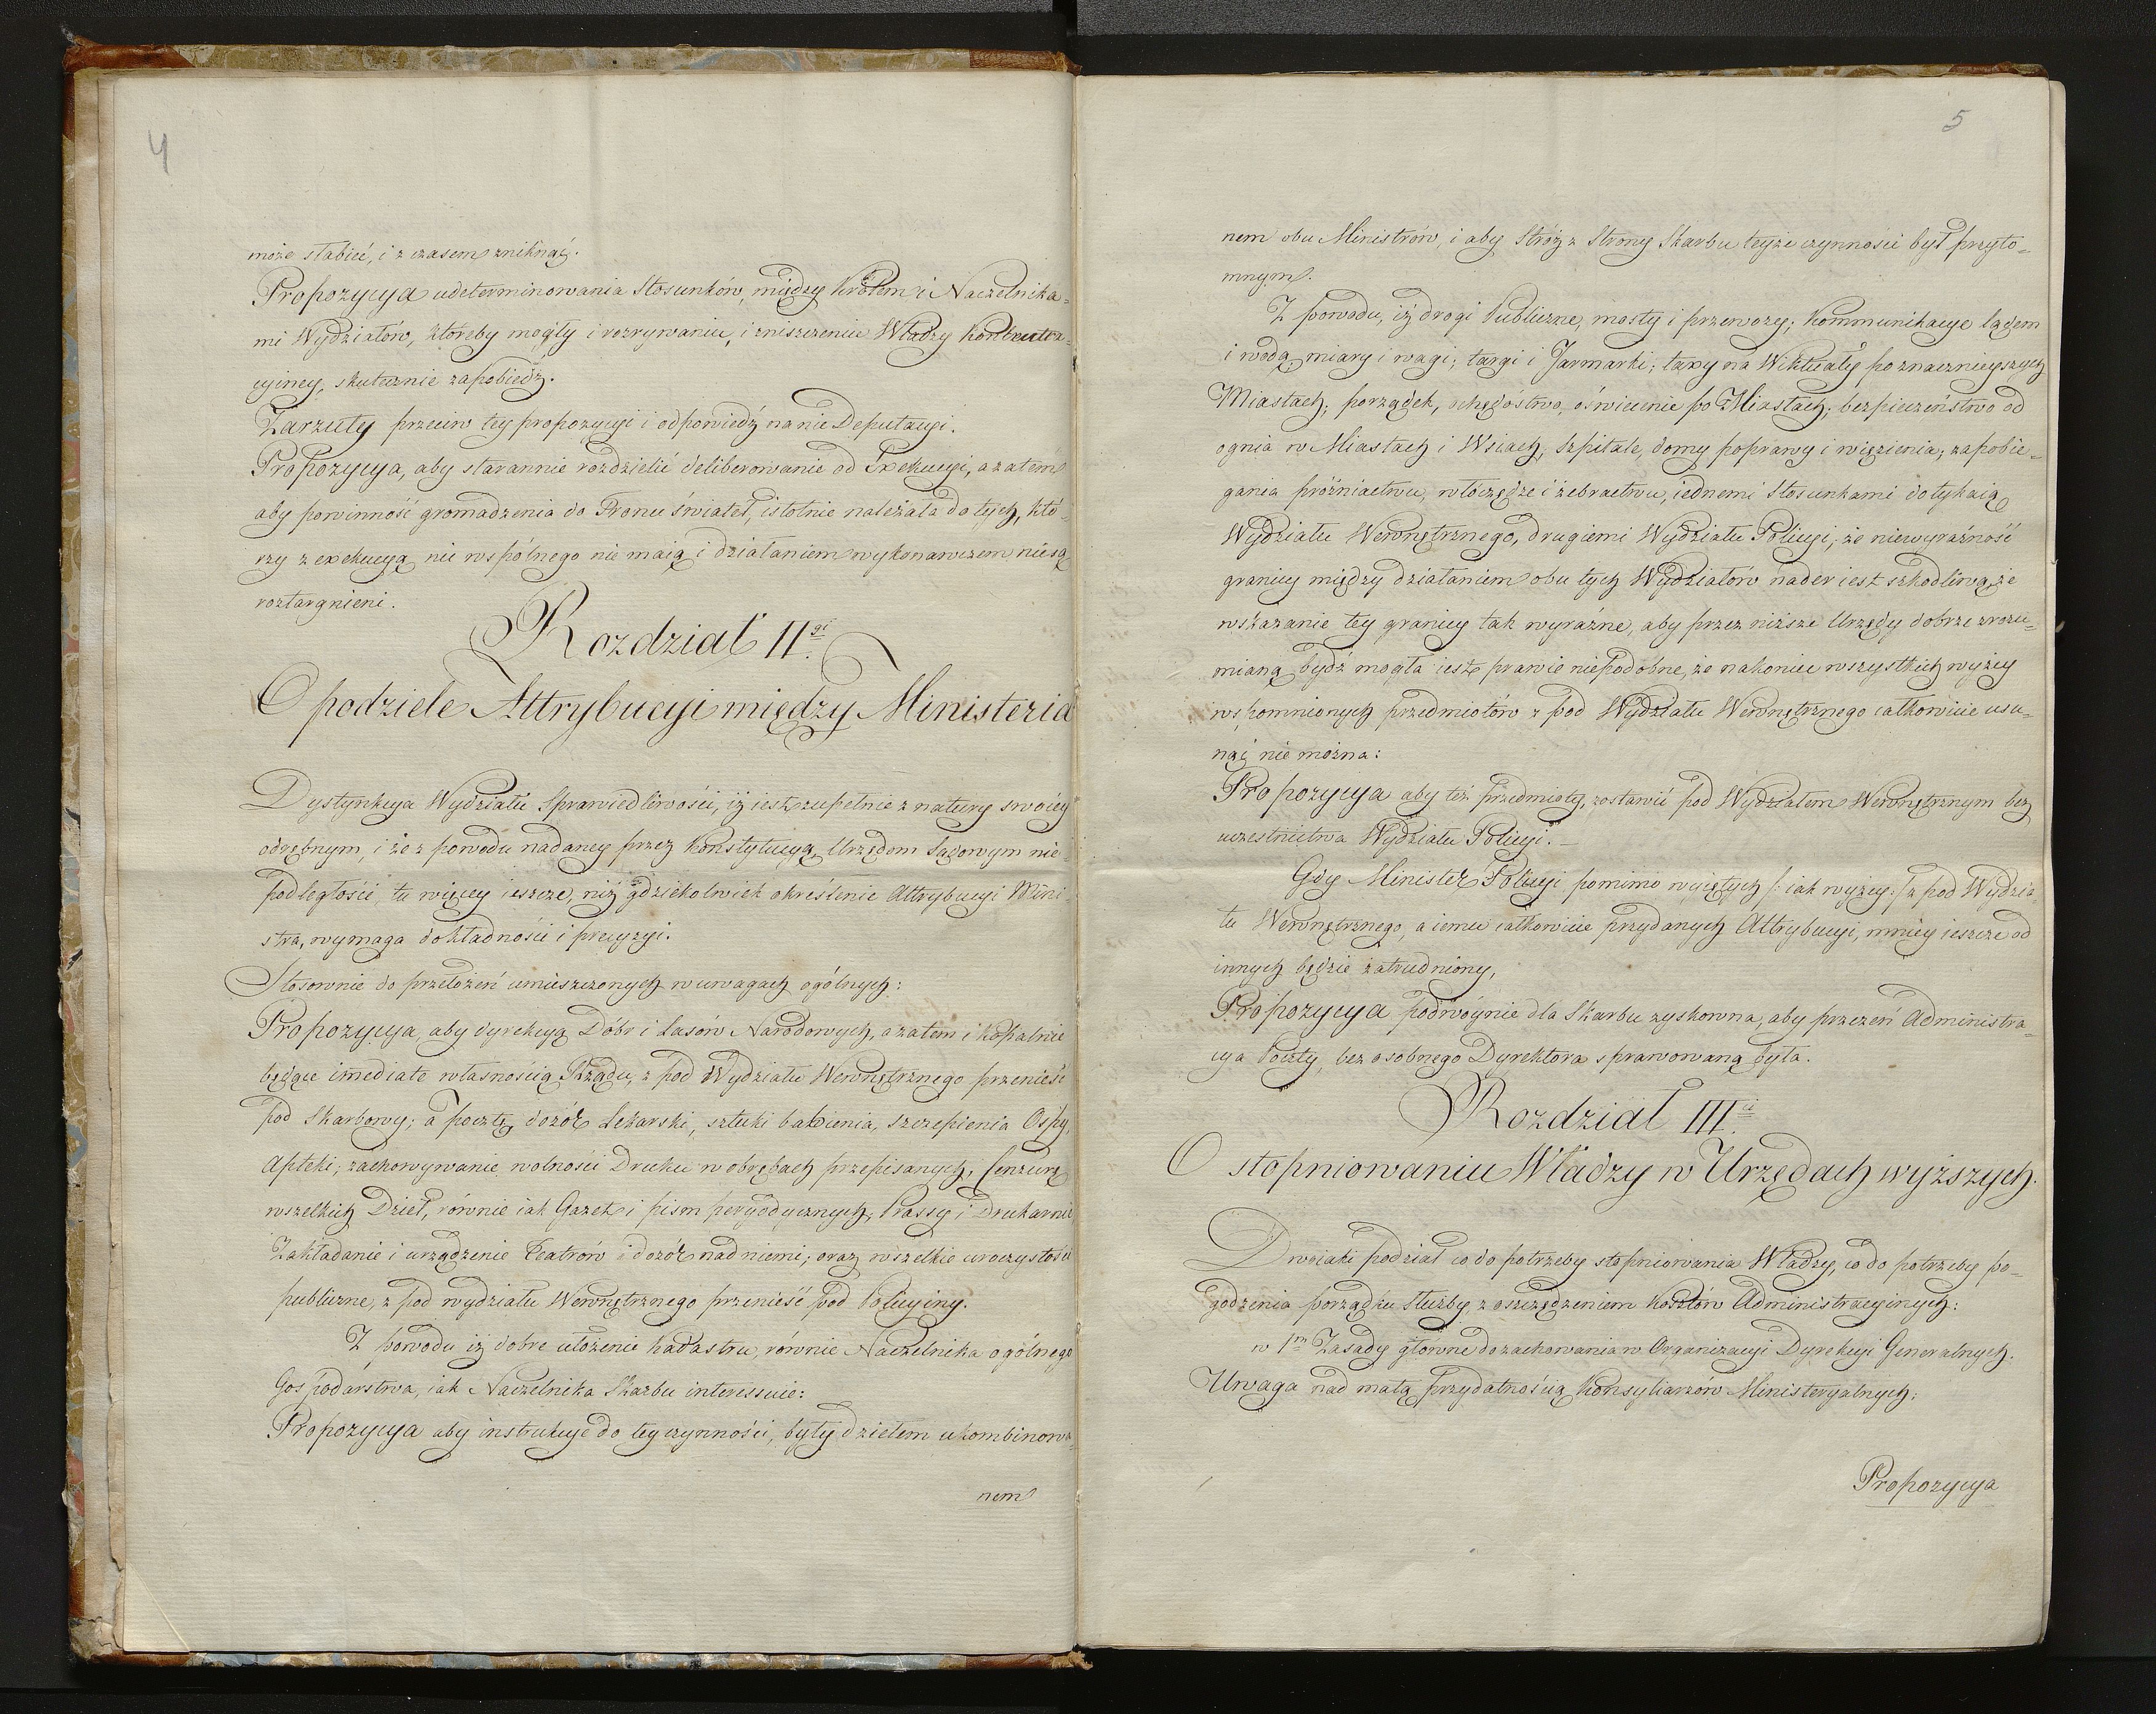 4
może słabieć, i z czasem zniknąć.
Propozycya udeterminowania Stosunków, między Królem i Naczelnika-
mi Wydziałów, któreby mogły i rozrywaniu, i zniszczeniu Władzy
cyiney, skutecznie zapobiedz.
Zarzuty przeciw tey propozycyi i odpowiedź na nie Deputacyi.
Propozycya, aby starannie rozdzielić deliberowanie od Exekucyi, a zatem
aby powinność gromadzenia do Tronu świateł, istotnie należała do tych, któ-
rzy z exekucyą nic wspólnego nie maią i działaniem wykonawczem nie są
roztargnieni.
Rozdział II.gi
O podziele Attrybucyi między Ministeria
Dystynkcya Wydziału Sprawiedliwości, iż iest zupełnie z natury swoiey
odrębnym, i że z powodu nadaney przez Konstytucyą, Urzędom Sądowym nie-
podległości, tu więcey ieszcze, niż gdziekolwiek określenie Attrybucyi Mini-
stra, wymaga dokładności i precyzyi.
Stosownie do przełożeń umieszczonych w uwagach ogólnych:
Propozycya, aby dyrekcyą Dóbr i Lasów Narodowych, a zatem i kopalnie
będące imediate własnością Rządu, z pod Wydziału Wewnętrznego przenieść
pod Skarbowy; a pocztę, dozór Lekarski, sztuki babienia, szczepienia Ospy,
Apteki; zachowywanie wolności Druku w obrębach przepisanych, Cenzurę
wszelkich Dzieł, równie iak Gazet i pism peryodycznych; Prassy i Drukarnie
Zakładanie i urządzenie Teatrów i dozór nad niemi; oraz wszelkie uroczystości
publiczne, z pod wydziału Wewnętrznego przenieść pod Policyiny.
Z powodu iż dobre ułożenie Katastru, równie Naczelnika ogólnego
Gospodarstwa, iak Naczelnika Skarbu interessuie:
Propozycya aby instrukcye do tey czynności, były dziełem ukombinowa-
nem
5
nem obu Ministrów, i aby Stróż z Strony Skarbu teyże czynności był przyto-
mnym.
Z powodu, iż drogi Publiczne, mosty i przewozy; Kommunikacye lądem
i wodą, miary i wagi; targi i Jarmarki; taxy na Wiktuały po znacznieyszych
Miastach; porządek, ochędóstwo, oświecenie po Miastach; bezpieczeństwo od
ognia w Miastach i Wsiach, Szpitale, domy poprawy i więzienia; zapobie-
gania próżniactwu, włóczędze i żebractwu, iednemi Stosunkami dotykaią
Wydziału Wewnętrznego, drugiemi Wydziału Policyi; że niewyraźność
granicy między działaniem obu tych Wydziałów nader iest szkodliwą, że
wskazanie tey granicy tak wyraźne, aby przez niższe Urzędy dobrze zrozu-
mianą bydź mogła iest prawie niepodobne, że nakoniec wszystkich wyżey
wspomnionych przedmiotów z pod Wydziału Wewnętrznego całkowicie usu-
nąć nie można:
Propozycya aby też przedmioty, zostawić pod Wydziałem Wewnętrznym bez
uczestnictwa Wydziału Policyi. –
Gdy Minister Policyi pomimo wyiętych /: iak wyżey :/ z pod Wydzia-
łu Wewnętrznego, a iemu całkowicie przydanych Attrybucyi, mniey ieszcze od
innych będzie zatrudniony,
Propozycya podwóynie dla Skarbu zyskowna, aby przezeń Administra-
cya Poczty, bez osobnego Dyrektora sprawowaną była.
Rozdział III.ci
O stopniowaniu Władzy w Urzędach wyższych.
Dwoiaki podział co do potrzeby stopniowania Władzy, co do potrzeby po-
godzenia porządku Służby z oszczędzeniem kosztów Administracyinych:
w 1m Zasady główne do zachowania w Organizacyi Dyrekcyi Generalnych.
Uwaga nad małą przydatnością Konsyliarzów Ministeryalnych;
Propozycya